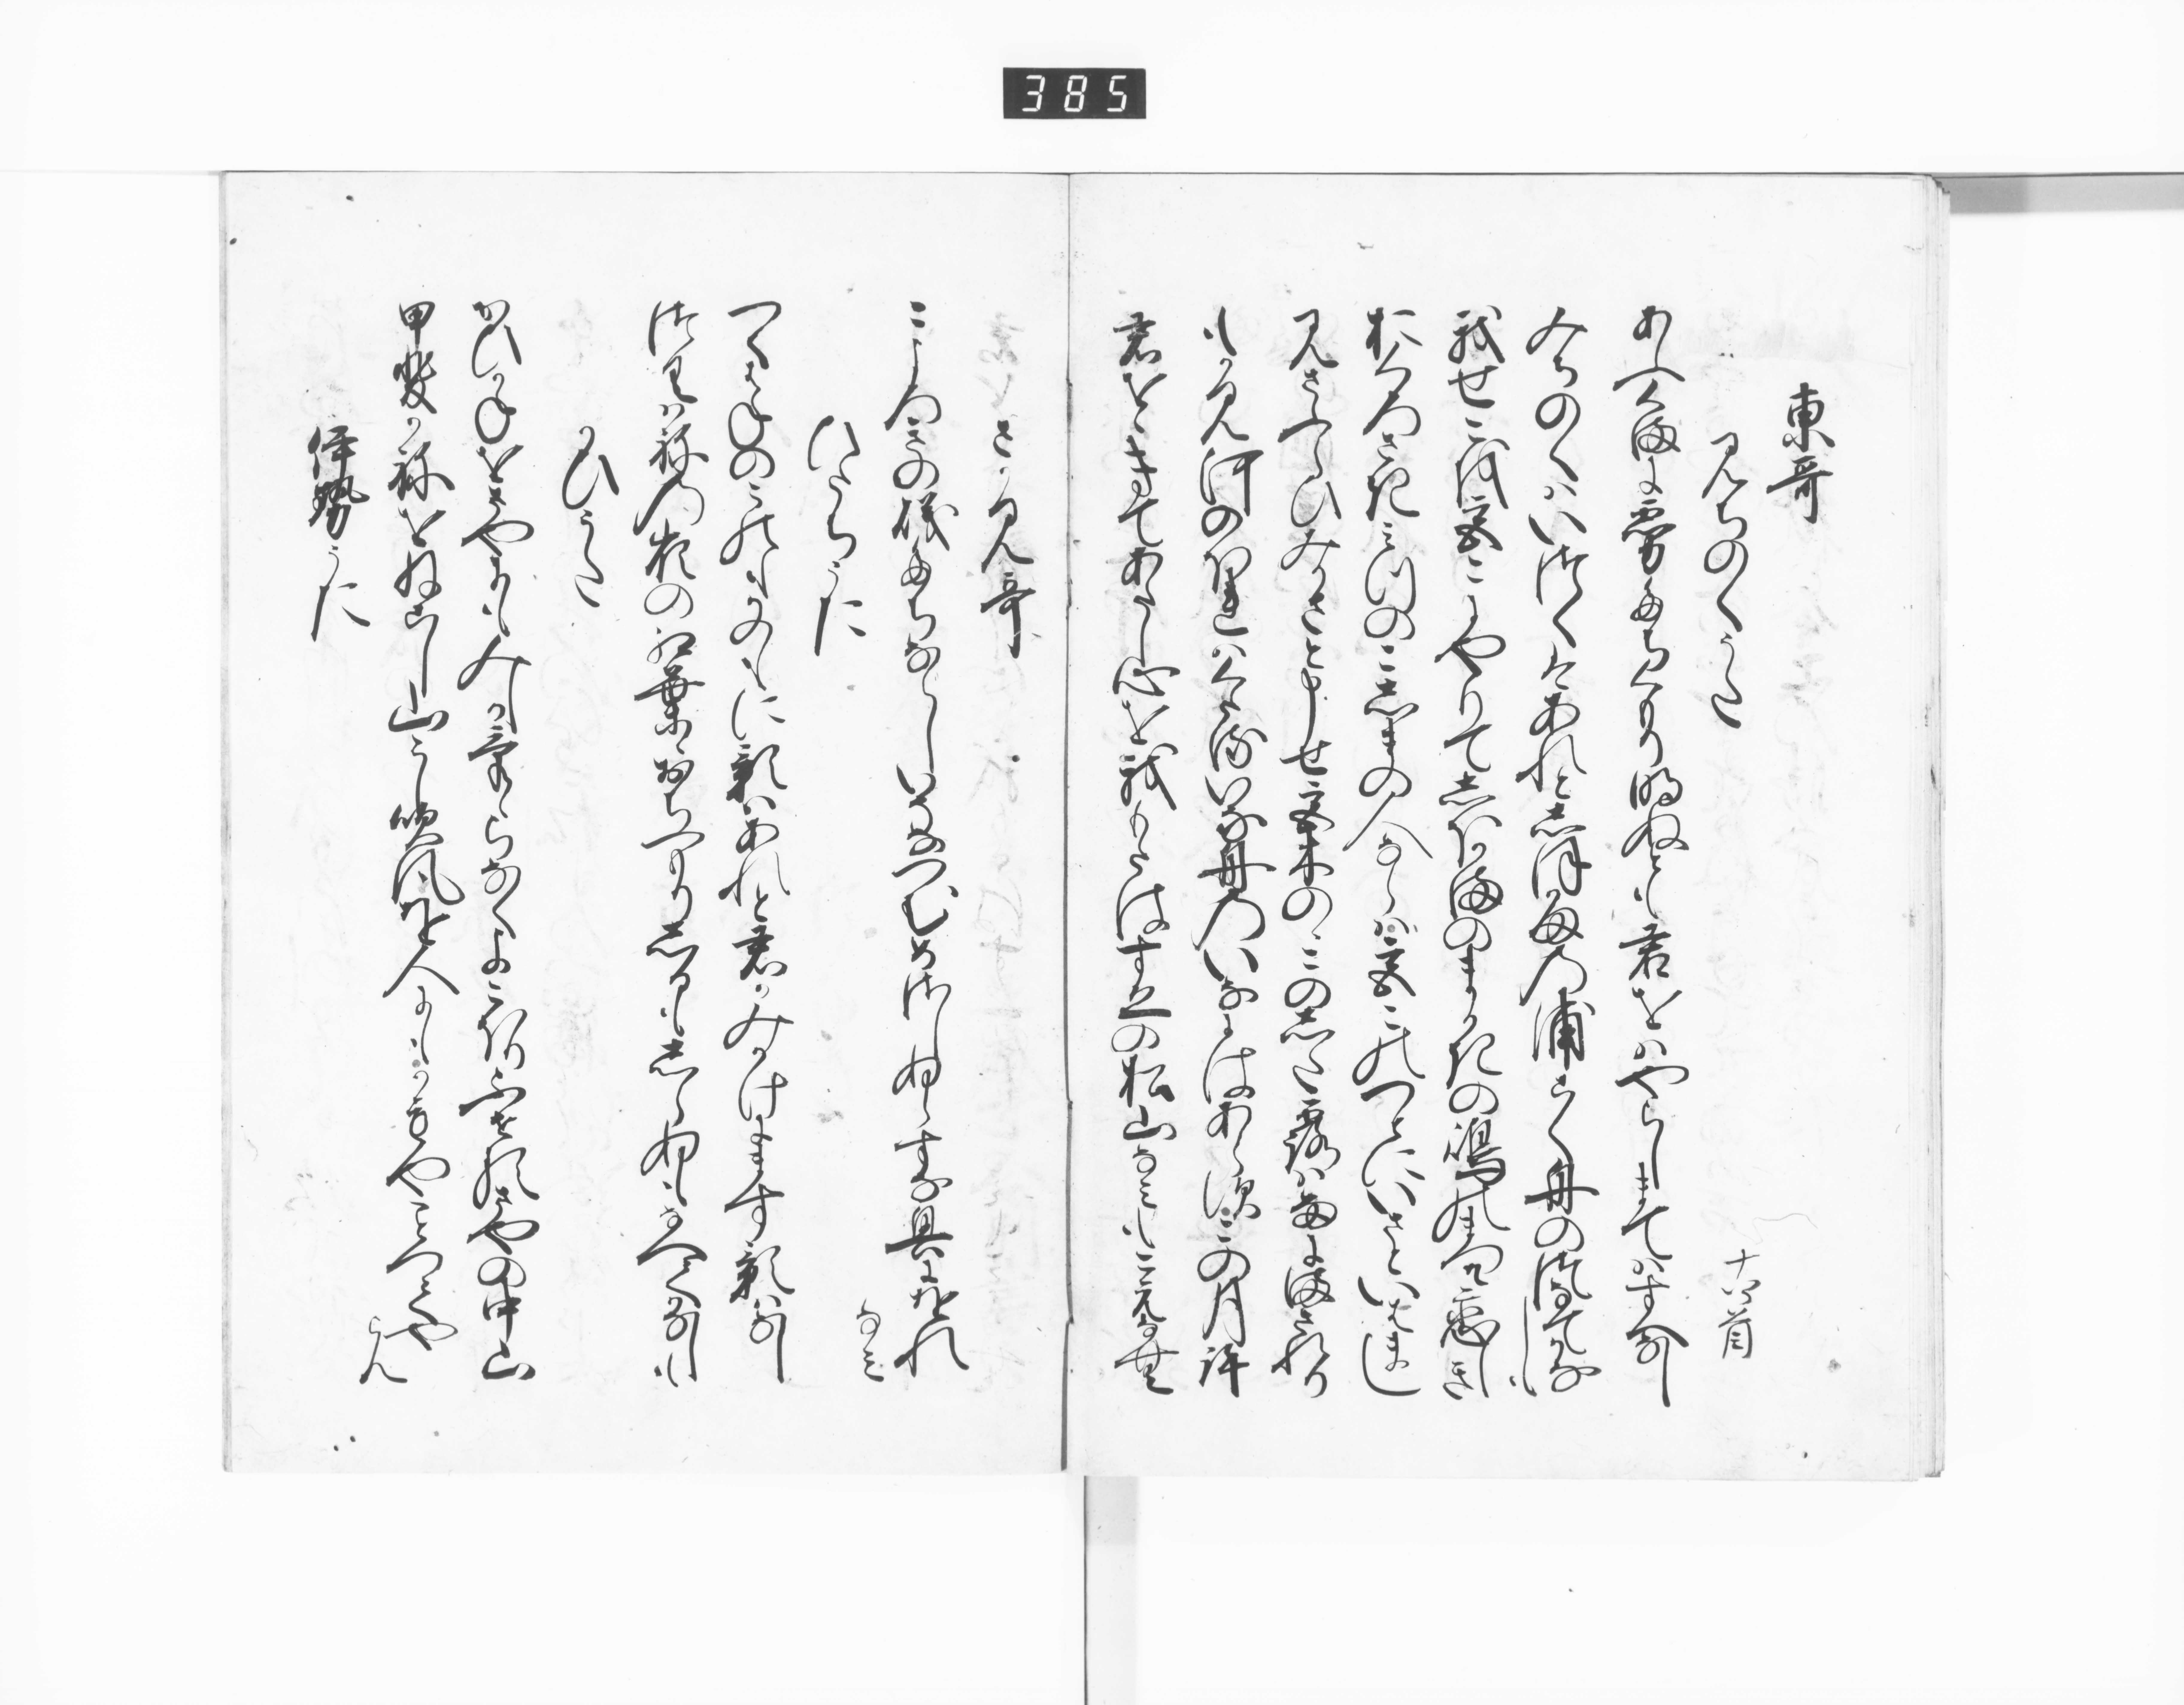 385
東哥
みちのくうた
十八首
あふくまに霧たちくもり明ぬとも君をはやらしまてはすへなし
みちのくはいつくはあれと志ほかまの浦こく舟の綱てかなしも
我せこを宮こにやりて志ほかまのまかきの嶋の松そ恋しき
おくろさきみつの小嶋の人ならは宮このつとにいさといはまし
みさふらひみかさと申せ宮木のゝこの志た露は雨にまされり
もかみ河のほれはくたるいな舟のいなにはあらす此の月許
君をゝきてあたし心を我もたはすゑの松山なみもこえなむ
さかみ哥
こよろきの磯たちならしいそなつむめさしぬらすな奥にをれ
なみ
ひたちうた
つくはねのこのもかのもに影はあれと君かみかけにます影はなし
つくはねの峯の紅葉おちつもり志るも志らぬもなへてかなしも
かひうた
かひかねをさやにもみしかけゝらなくよこほりふせるさやの中山
甲斐かねをねこし山こし吹風を人にもかもやことつてや
らん
伊勢うた